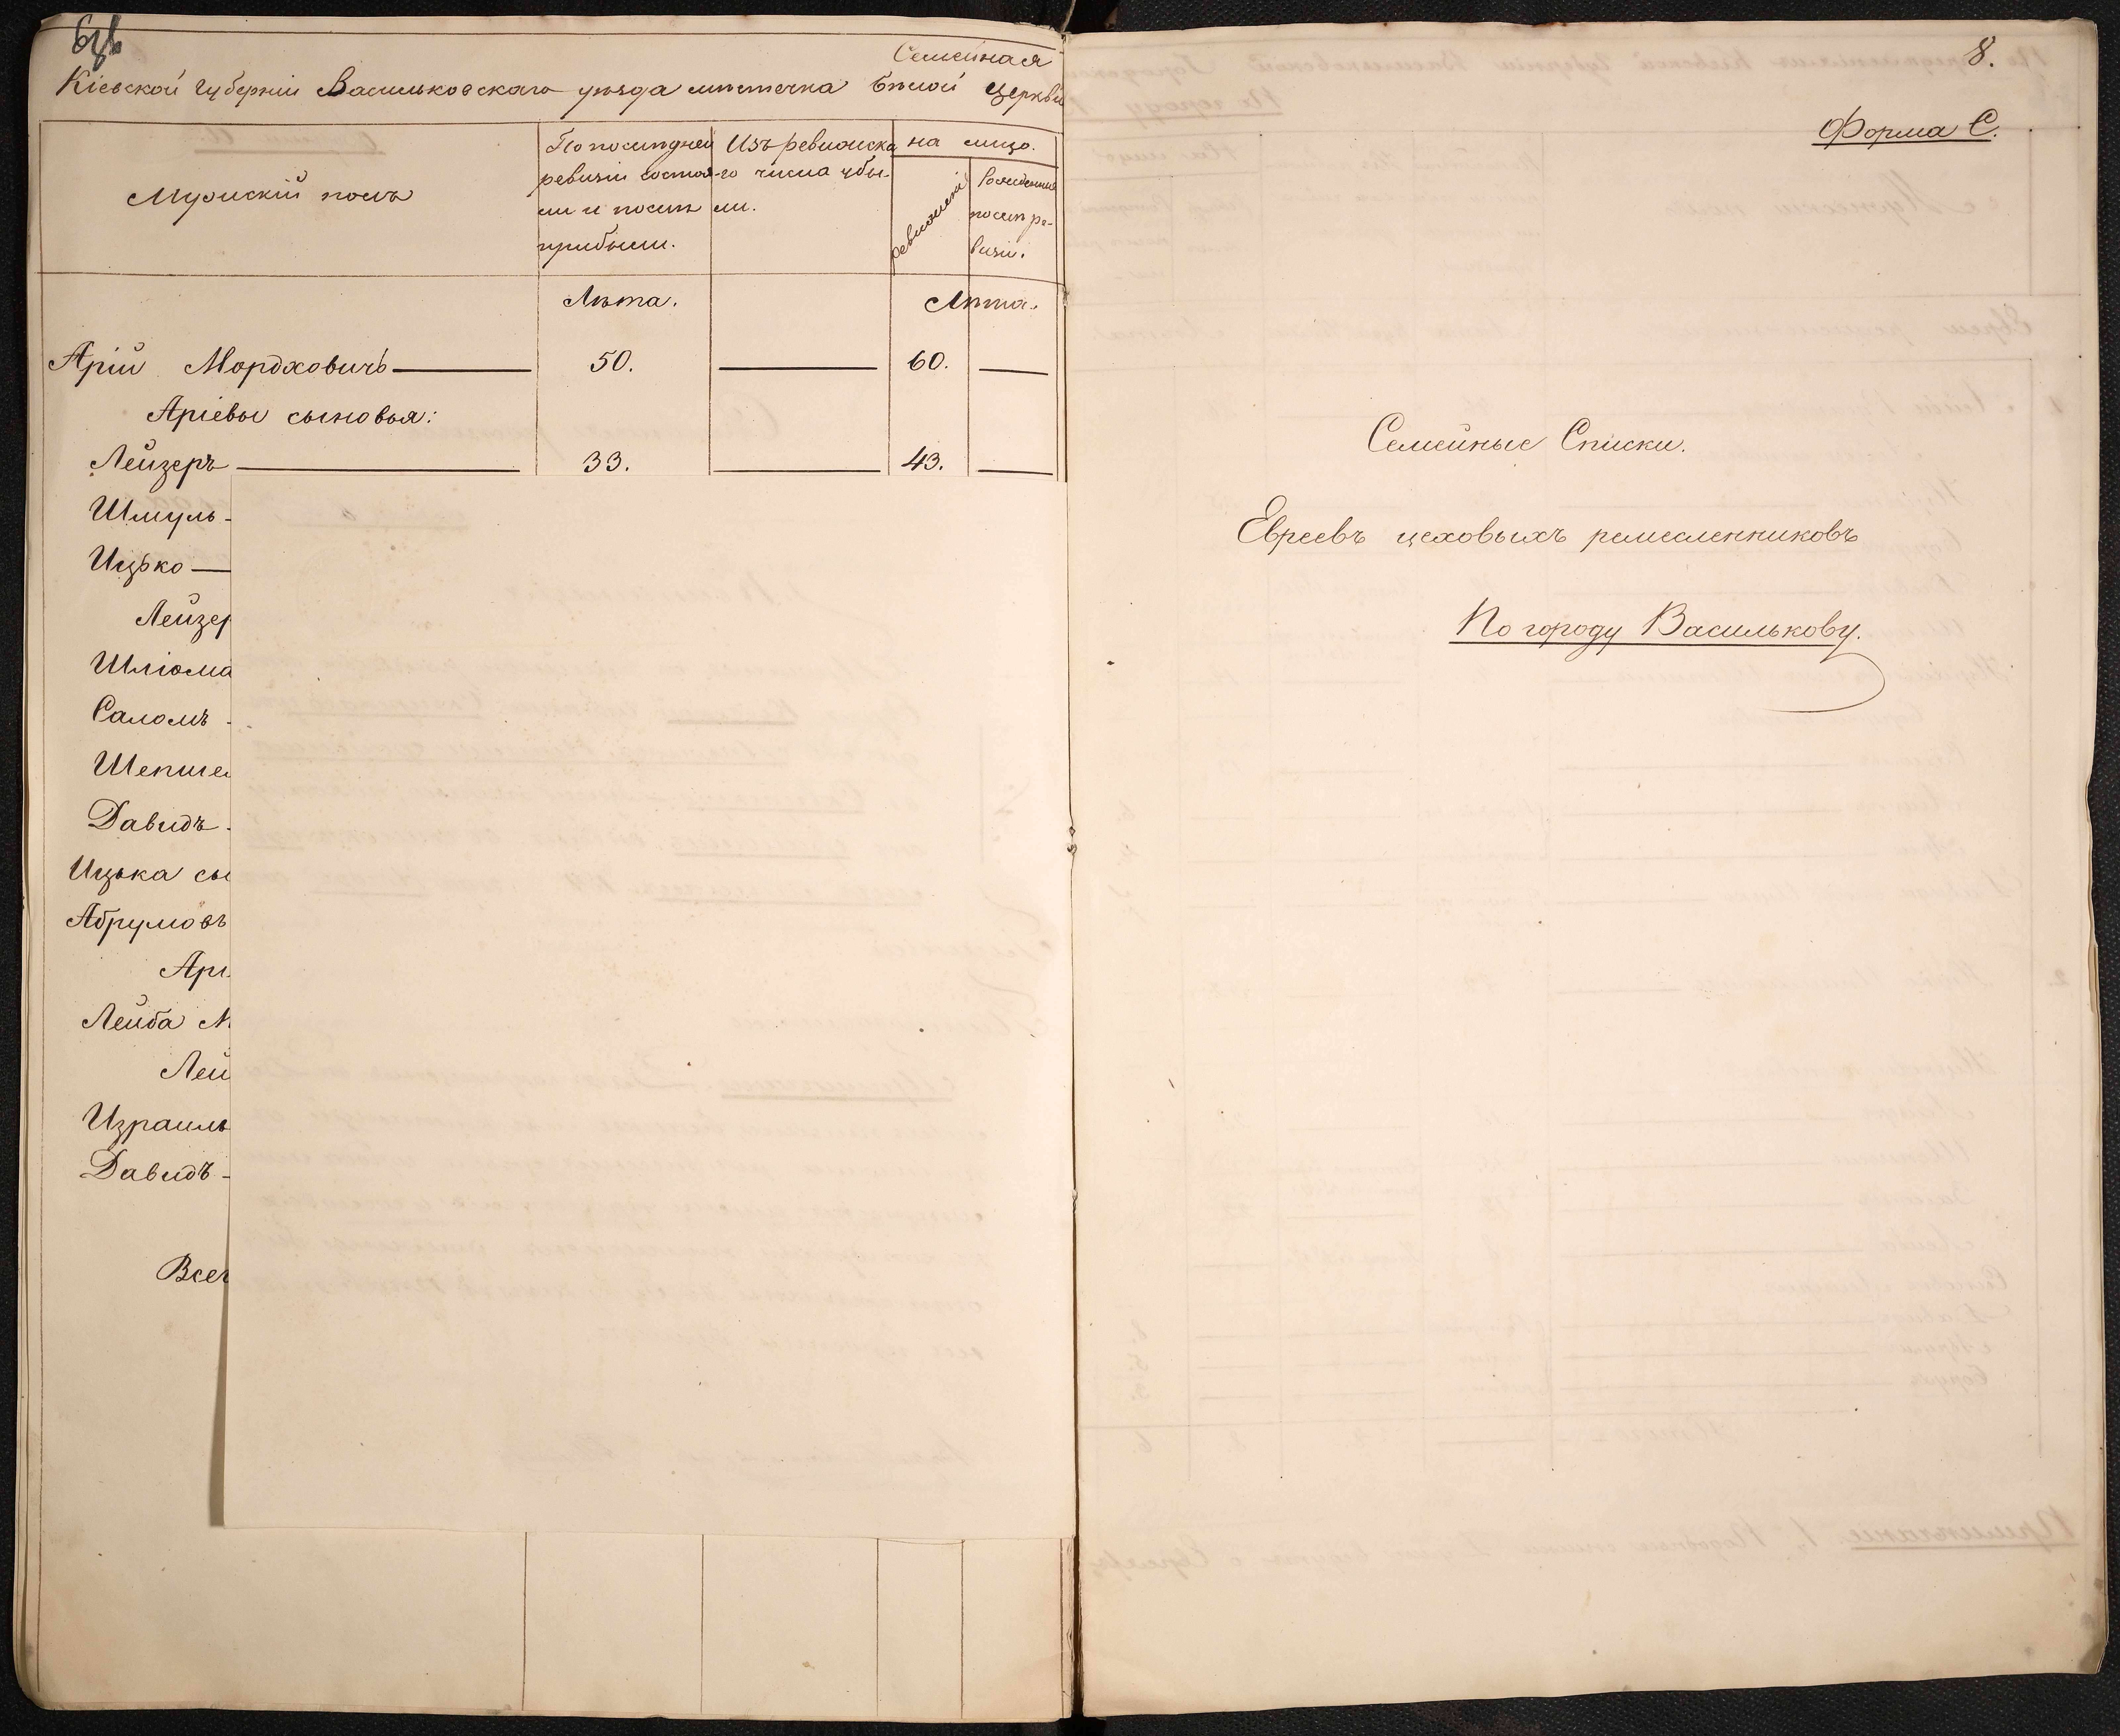 Семейная
Кіевской Губерніи Васильковскаго уѣзда мѣстечка Бѣлой Церкви
Мужскій полъ
По послѣдней
ревизіи состоя-
ли и послѣ
прибыли.
Изъ ревизска
го числа убы-
ли.
на лицо.
ревизскій
Рожденные
послѣ ре-
визіи.
Лѣта.
Лѣта.
Арій Мордховичъ 50. 60.
Аріевы сыновья:
Лейзеръ 33. 43.
Шмуль
Ицько
Лейзер
Шліома
Саломъ
Шепшел
Давидъ
Ицька сы
Абрумовъ
Арі
Лейба М
Лей
Израиль
Давидъ
Всег
8.
Форма С.
Семейные Списки.
Евреевъ цеховыхъ ремесленниковъ
По городу Василькову.